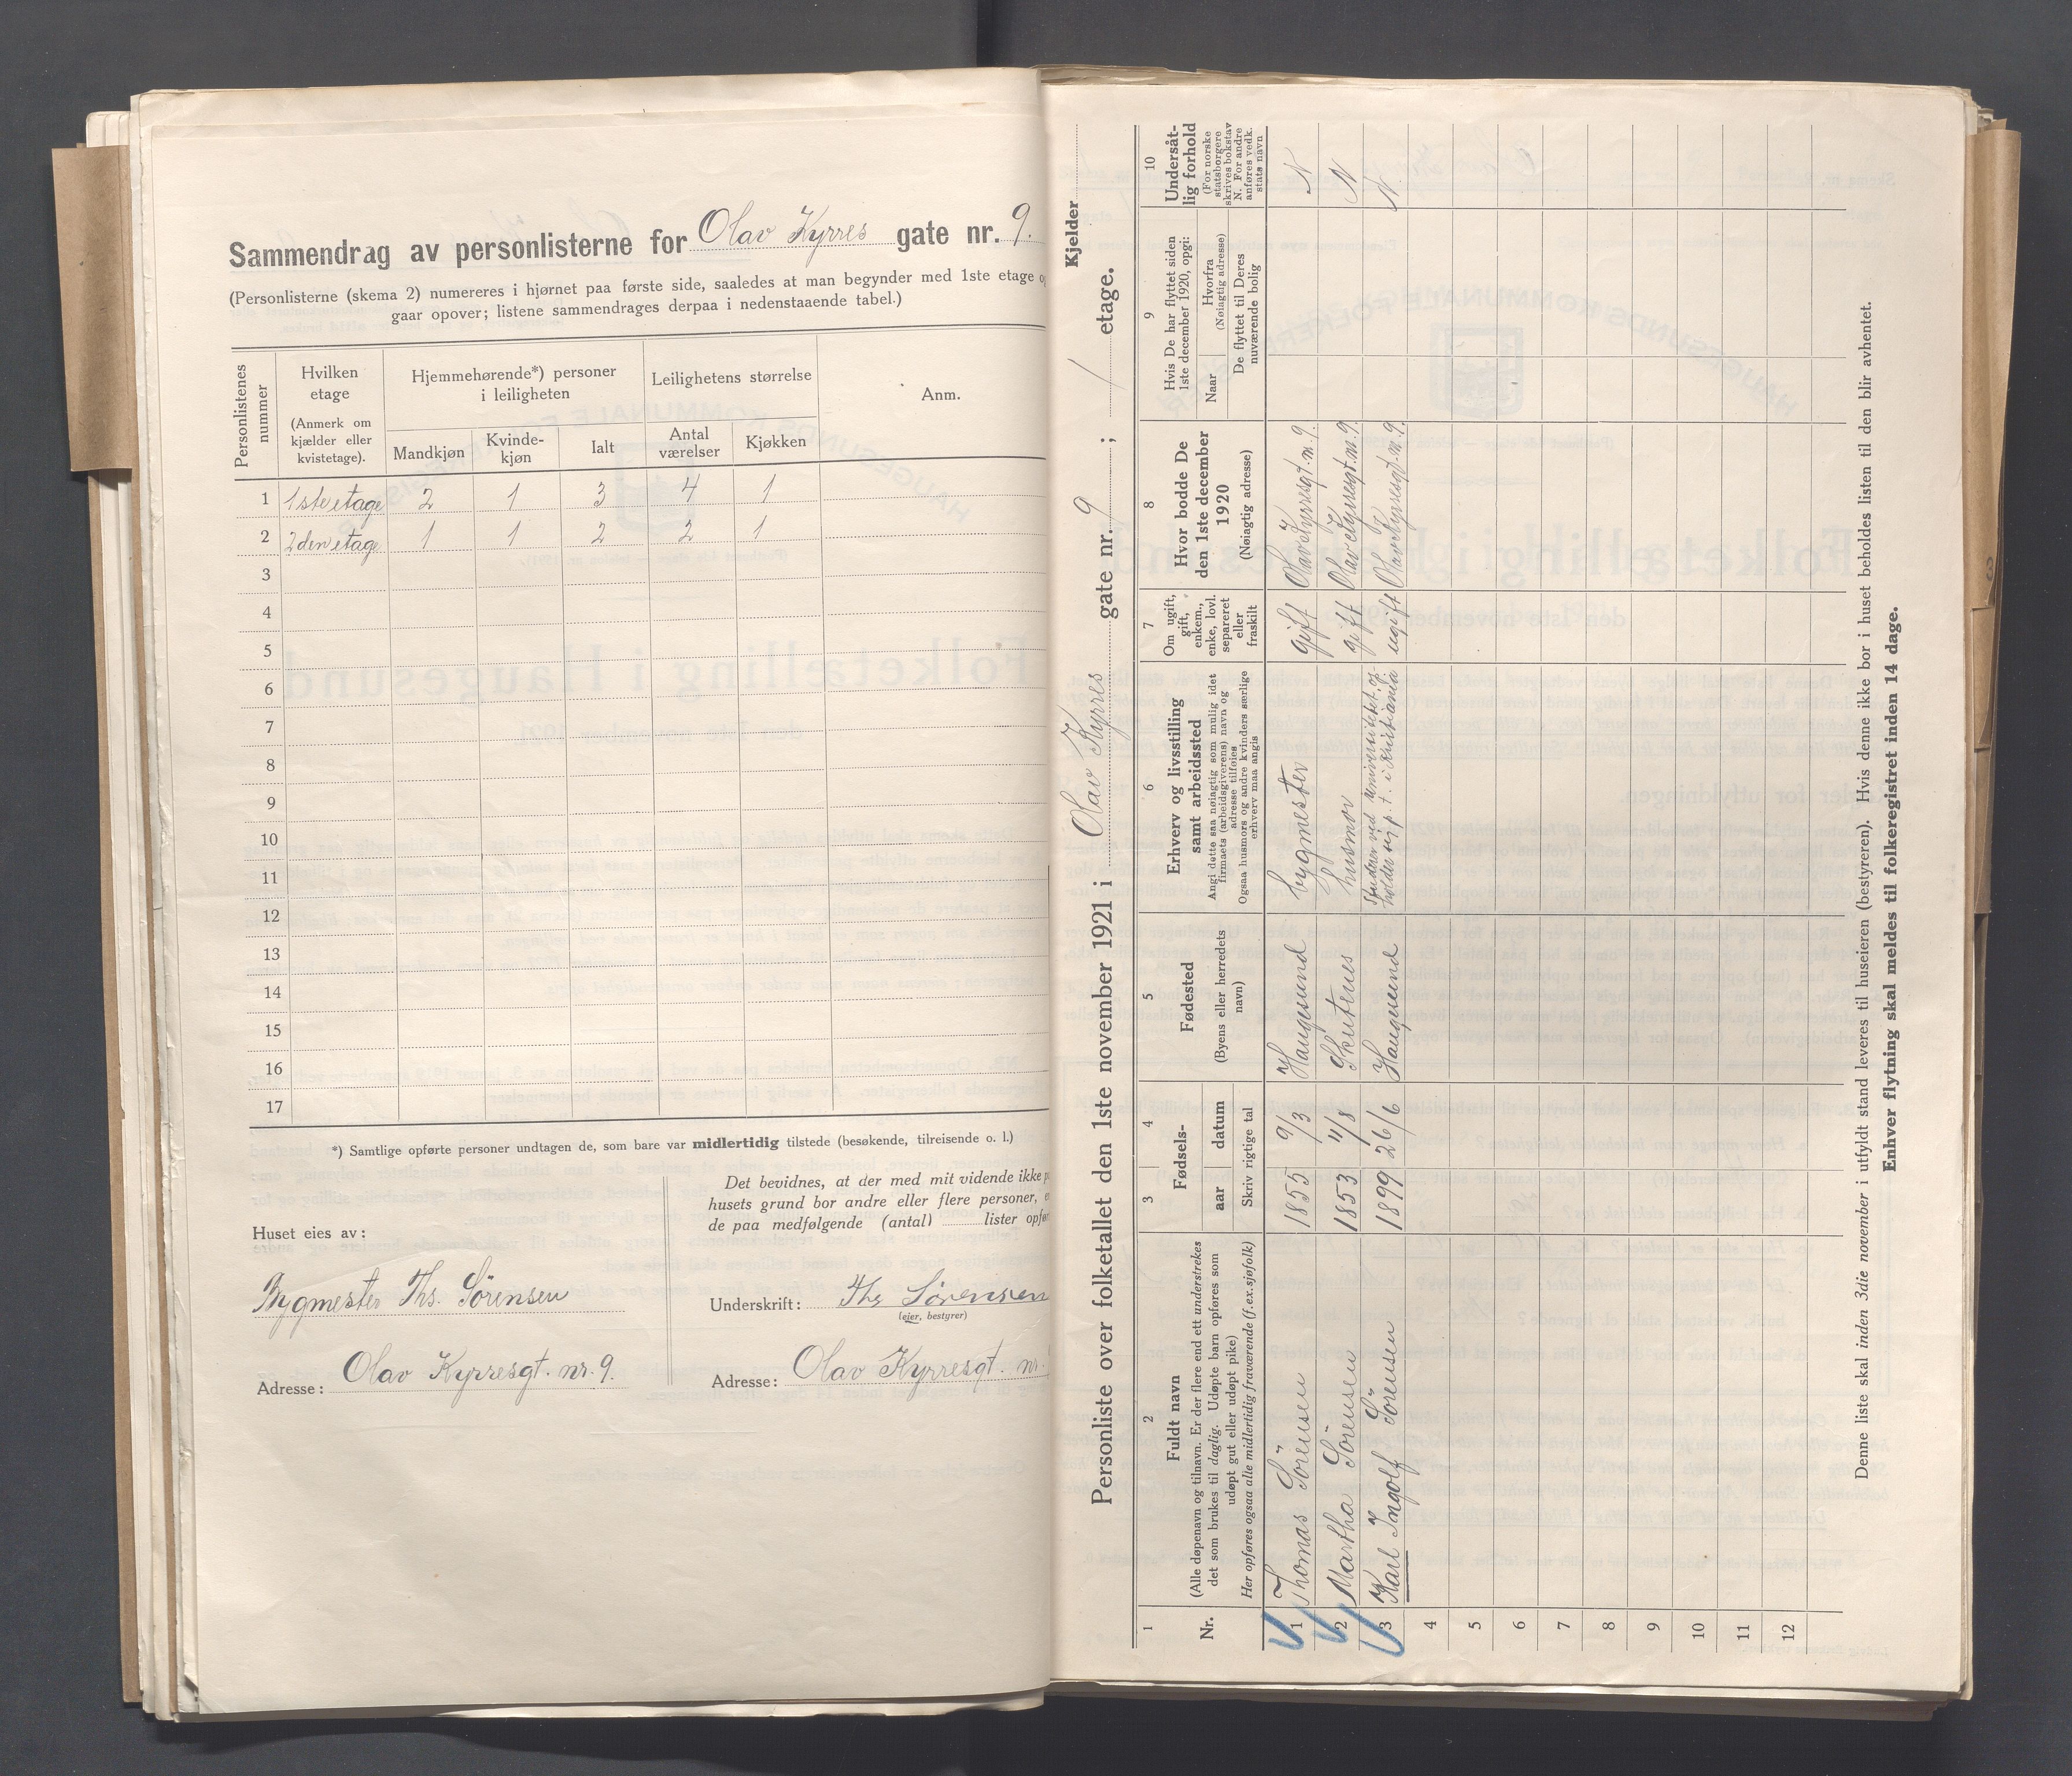 Sammendrag av personlisterne for Olav Kyrres gate nr. 9.
(Personlisterne (skema 2) numereres i hjørnet paa første side, saaledes at man begynder med 1ste etage
gaar opover; listene sammendrages derpaa i nedenstaaende tabel.)
Personlistenes nummer
Hvilken etage
(Anmerk om kjælder eller kvistetage).
Hjemmehørende*) personer i leiligheten
Leilighetens størrelse
Anm.
Mandkjøn
Kvindekjøn
Ialt
Antal værelser
Kjøkken
1 1ste etage 2 1 3 4 1
2 2den etage 1 1 2 2 1
3
4
5
6
7
8
9
10
11
12
13
14
15
16
17
*) Samtlige opførte personer undtagen de, som bare var midlertidig tilstede (besøkende, tilreisende o. l.)
Huset eies av:
Bygmester Ths. Sörensen
Adresse: Olav Kyrresgt. nr. 9.
Det bevidnes, at der med mit vidende ikke
husets grund bor andre eller flere personer,
de paa medfølgende (antal) lister
Underskrift: Ths Sörensen
(eier, bestyrer)
Adresse: Olav Kyrresgt. nr.
Kjelder
Personliste over folketallet den 1ste november 1921 i Olav Kyrres gate nr. 9; 1 etage.
1
Nr.
2
Fuldt navn
(Alle døpenavn og tilnavn. Er der flere end ett understrekes
det som brukes til daglig. Udøpte barn opføres som
udøpt gut eller udøpt pike)
Her opføres ogsaa alle midlertidig fraværende (f.ex. sjøfolk)
3
4
Fødsels-
aar
datum
Skriv rigtige tal
5
Fødested
(Byens eller herredets navn)
6
Erhverv og livsstilling
samt arbeidssted
Angi dette saa nøiagtig som mulig idet
firmaets (arbeidsgiverens) navn og
adresse tilføies
Ogsaa husmors og andre kvinders særlige
erhverv maa angis
7
Om ugift,
gift,
enkem.,
enke, lovl.
separeret
eller
fraskilt
8
Hvor bodde De
den 1ste december
1920
(Nøiagtig adresse)
9
Hvis De har flyttet siden
1ste december 1920, opgi:
Naar
Hvorfra
(Nøiagtig adresse)
De flyttet til Deres
nuværende bolig
10
Undersåt-
lig forhold
(For norske
statsborgere
skrives bokstav
N. For andre
anføres vedk.
stats navn
1 Thomas Sörensen 1855 9/3 Haugesund bygmester gift Olav Kyrresgt. nr. 9. N
2 Martha Sörensen 1853 11/8 Skutenes husmor gift Olav Kyrresgt. nr. 9. N
3 Karl Ingolf Sörensen 1899 26/6 Haugesund Studerer ved Universitetet, op-
holder sig p. t. i Kristiania ugift Olav Kyrresgt. nr. 9. N.
4
5
6
7
8
9
10
11
12
Denne liste skal inden 3die november i utfyldt stand leveres til huseieren (bestyreren). Hvis denne ikke bor i huset beholdes listen til den blir avhentet.
Enhver flytning skal meldes til folkeregistret inden 14 dage.